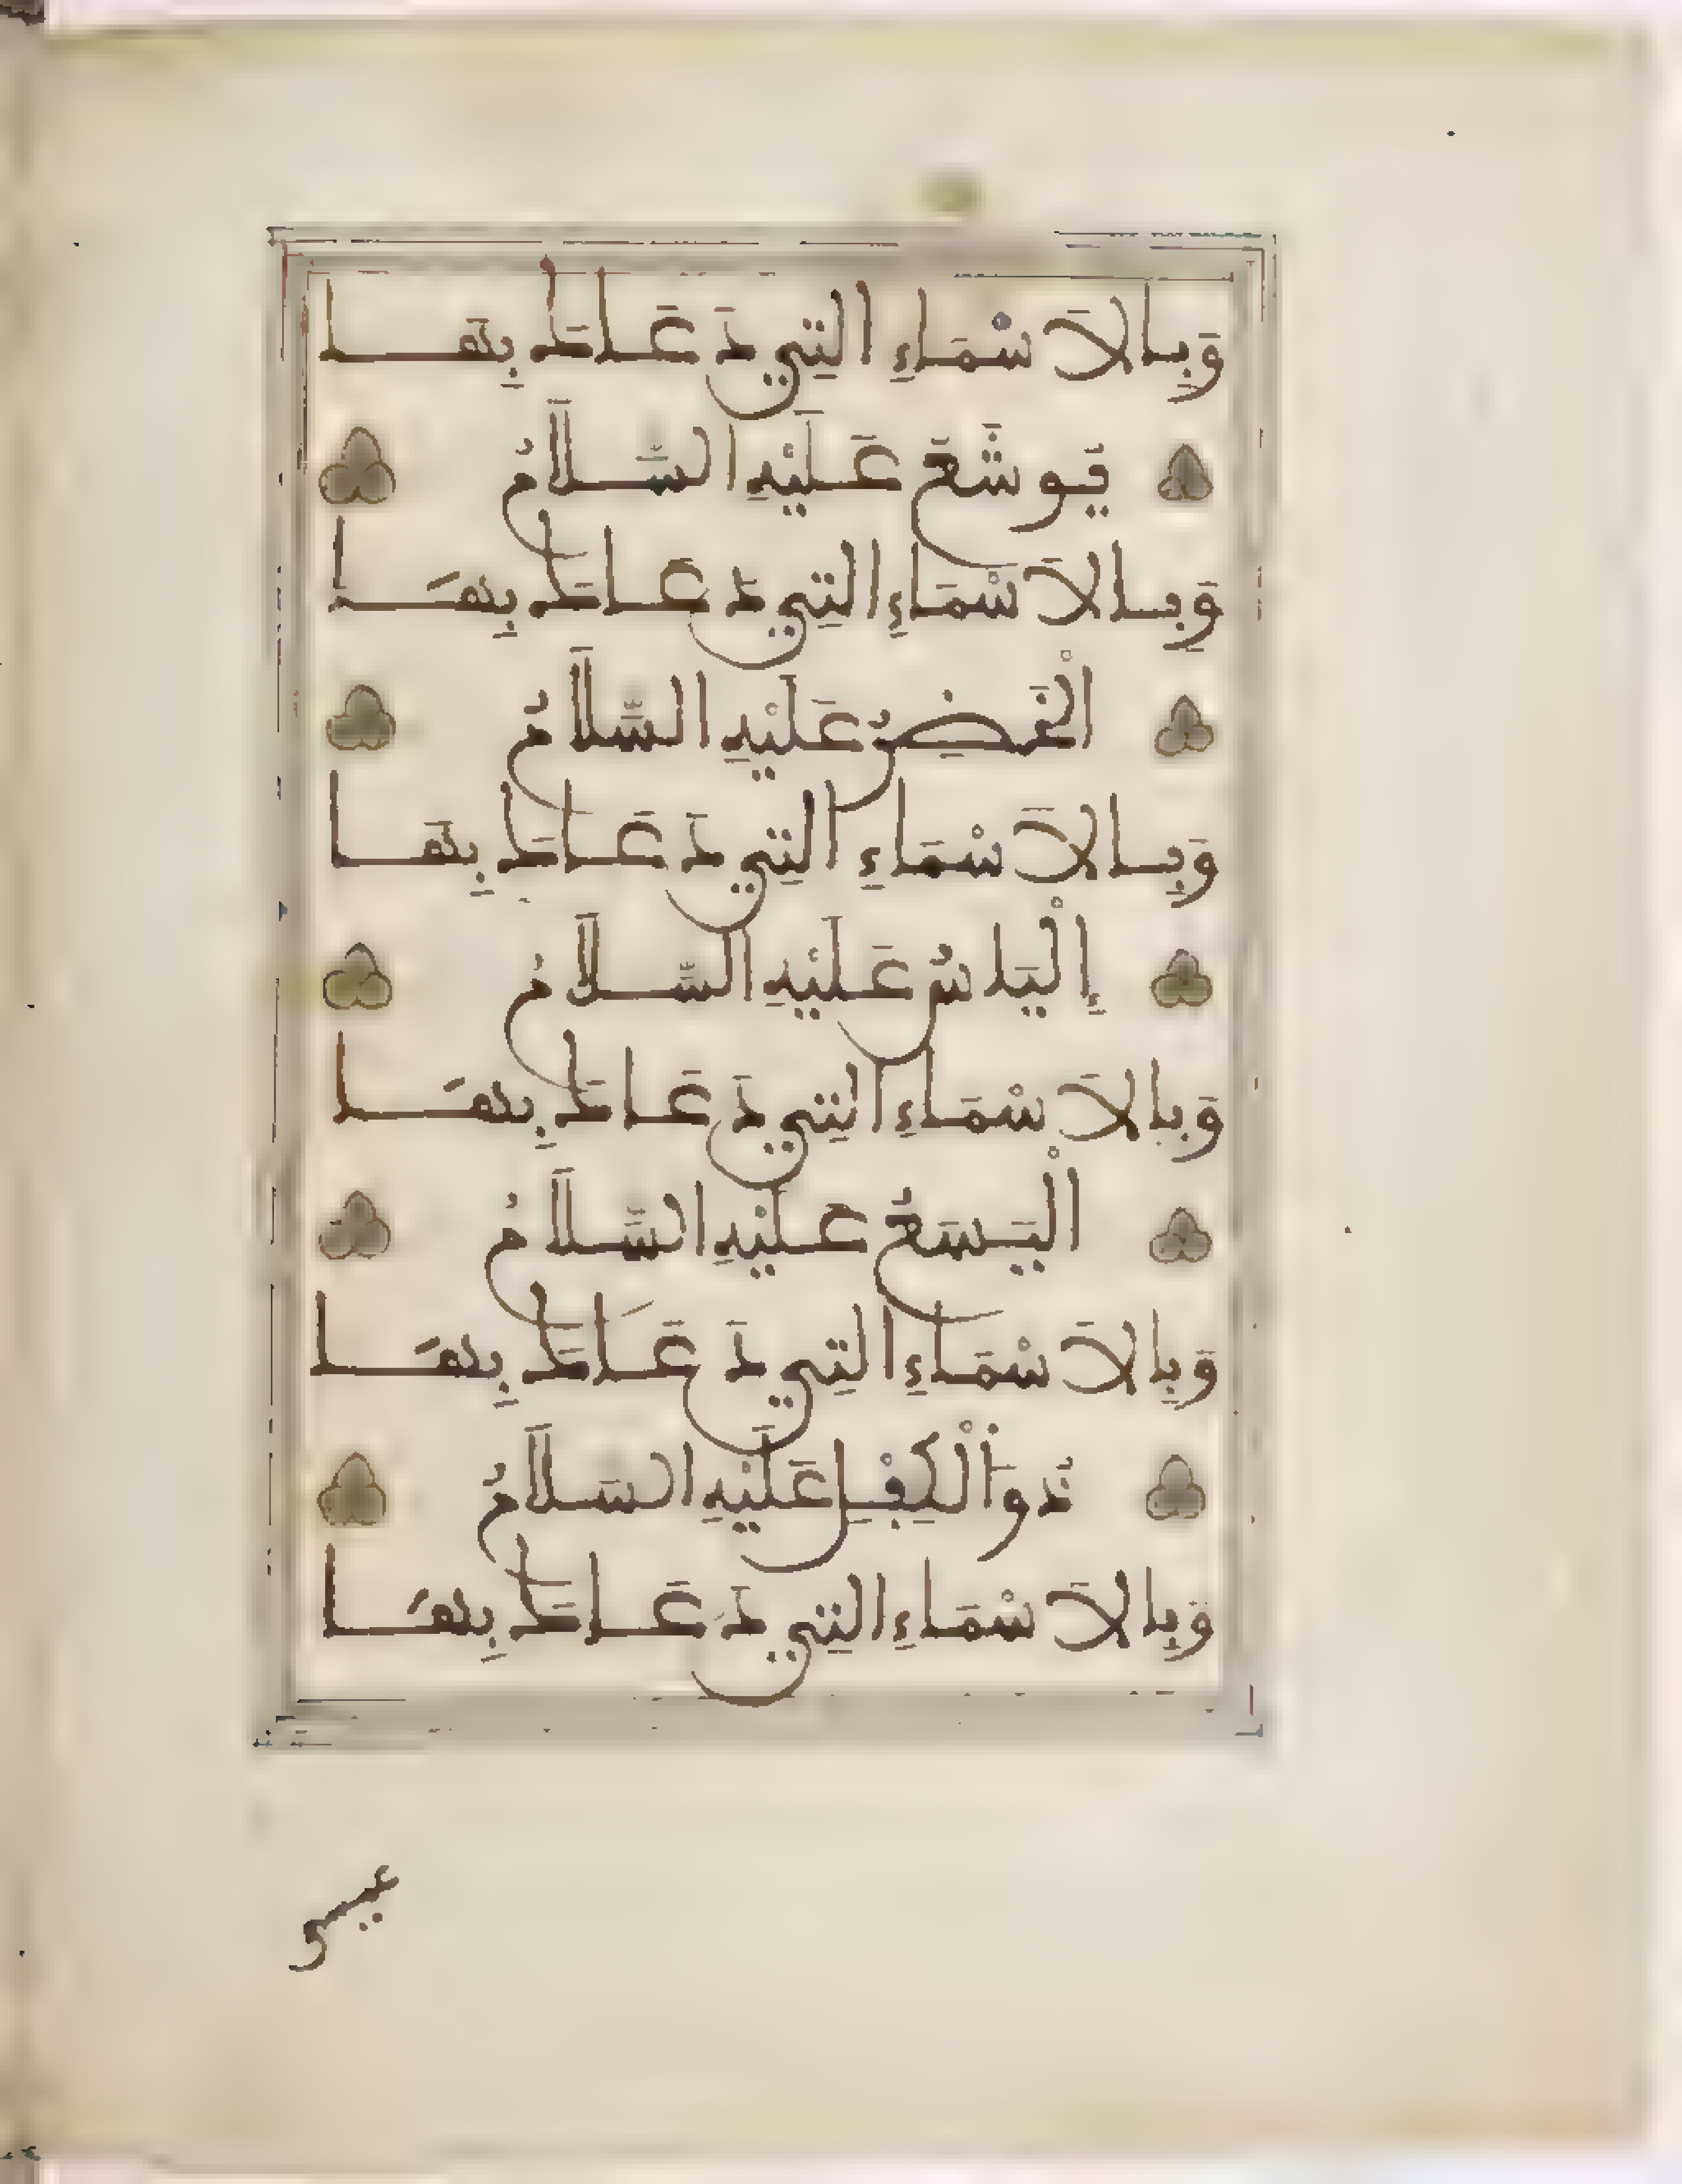 وَبِالاَسْمَاءِ التِي دَعَاكَ بِهَا
يُوشَعُ عَلَيْهِ السَّلَامُ
وَبِالاَسْمَاءِ التِي دَعَاكَ بِهَا
الْخَضِرُ عَلَيْهِ السَّلَامُ
وَبِالاَسْمَاءِ التِي دَعَاكَ بِهَا
إِلْيَاسُ عَلَيْهِ السَّلَامُ
وَبِالاَسْمَاءِ التِي دَعَاكَ بِهَا
الْيَسَعُ عَلَيْهِ السَّلَامُ
وَبِالاَسْمَاءِ التِي دَعَاكَ بِهَا
ذُو الْكِفْلِ عَلَيْهِ السَّلَامُ
وَبِالاَسْمَاءِ التِي دَعَاكَ بِهَا
عيسى